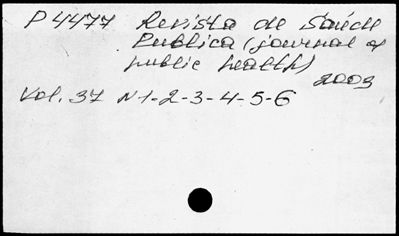 P4477 Revista de Saúde
Publica (journal of
public health)
2003
Vol. 37 N1-2-3-4-5-6